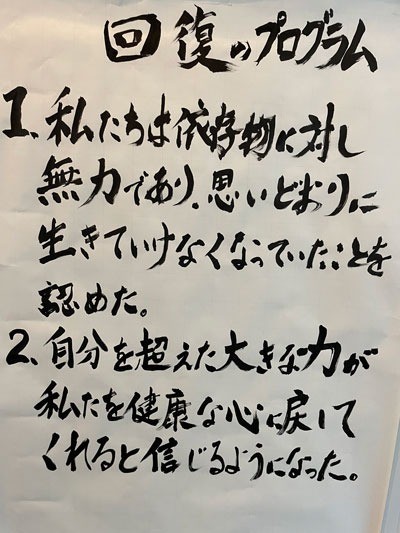 回復のプログラム
1、私たちは依存物に対し
無力であり、思いどおりに
生きていけなくなっていたことを
認めた。
2、自分を超えた大きな力が
私たを健康な心に戻して
くれると信じるようになった。